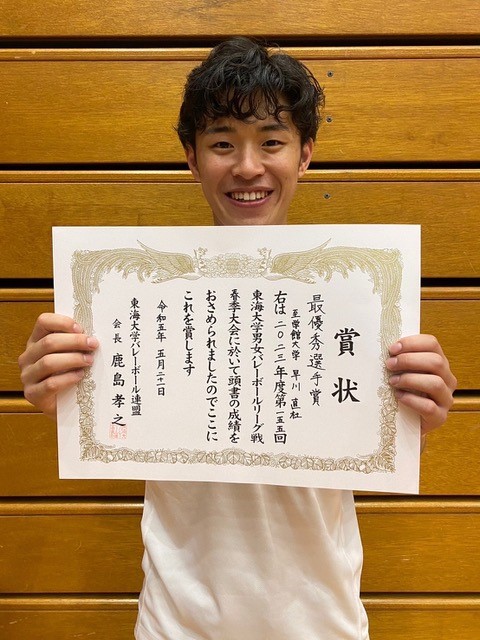 賞状
最優秀選手賞
至学館大学 早川 直杜
右は二〇二三年度第一五五回
東海大学男女バレーボールリーグ戦
春季大会に於いて頭書の成績を
おさめられましたのでここに
これを賞します
令和五年 五月二十一日
東海大学バレーボール連盟
会長 鹿島 孝之